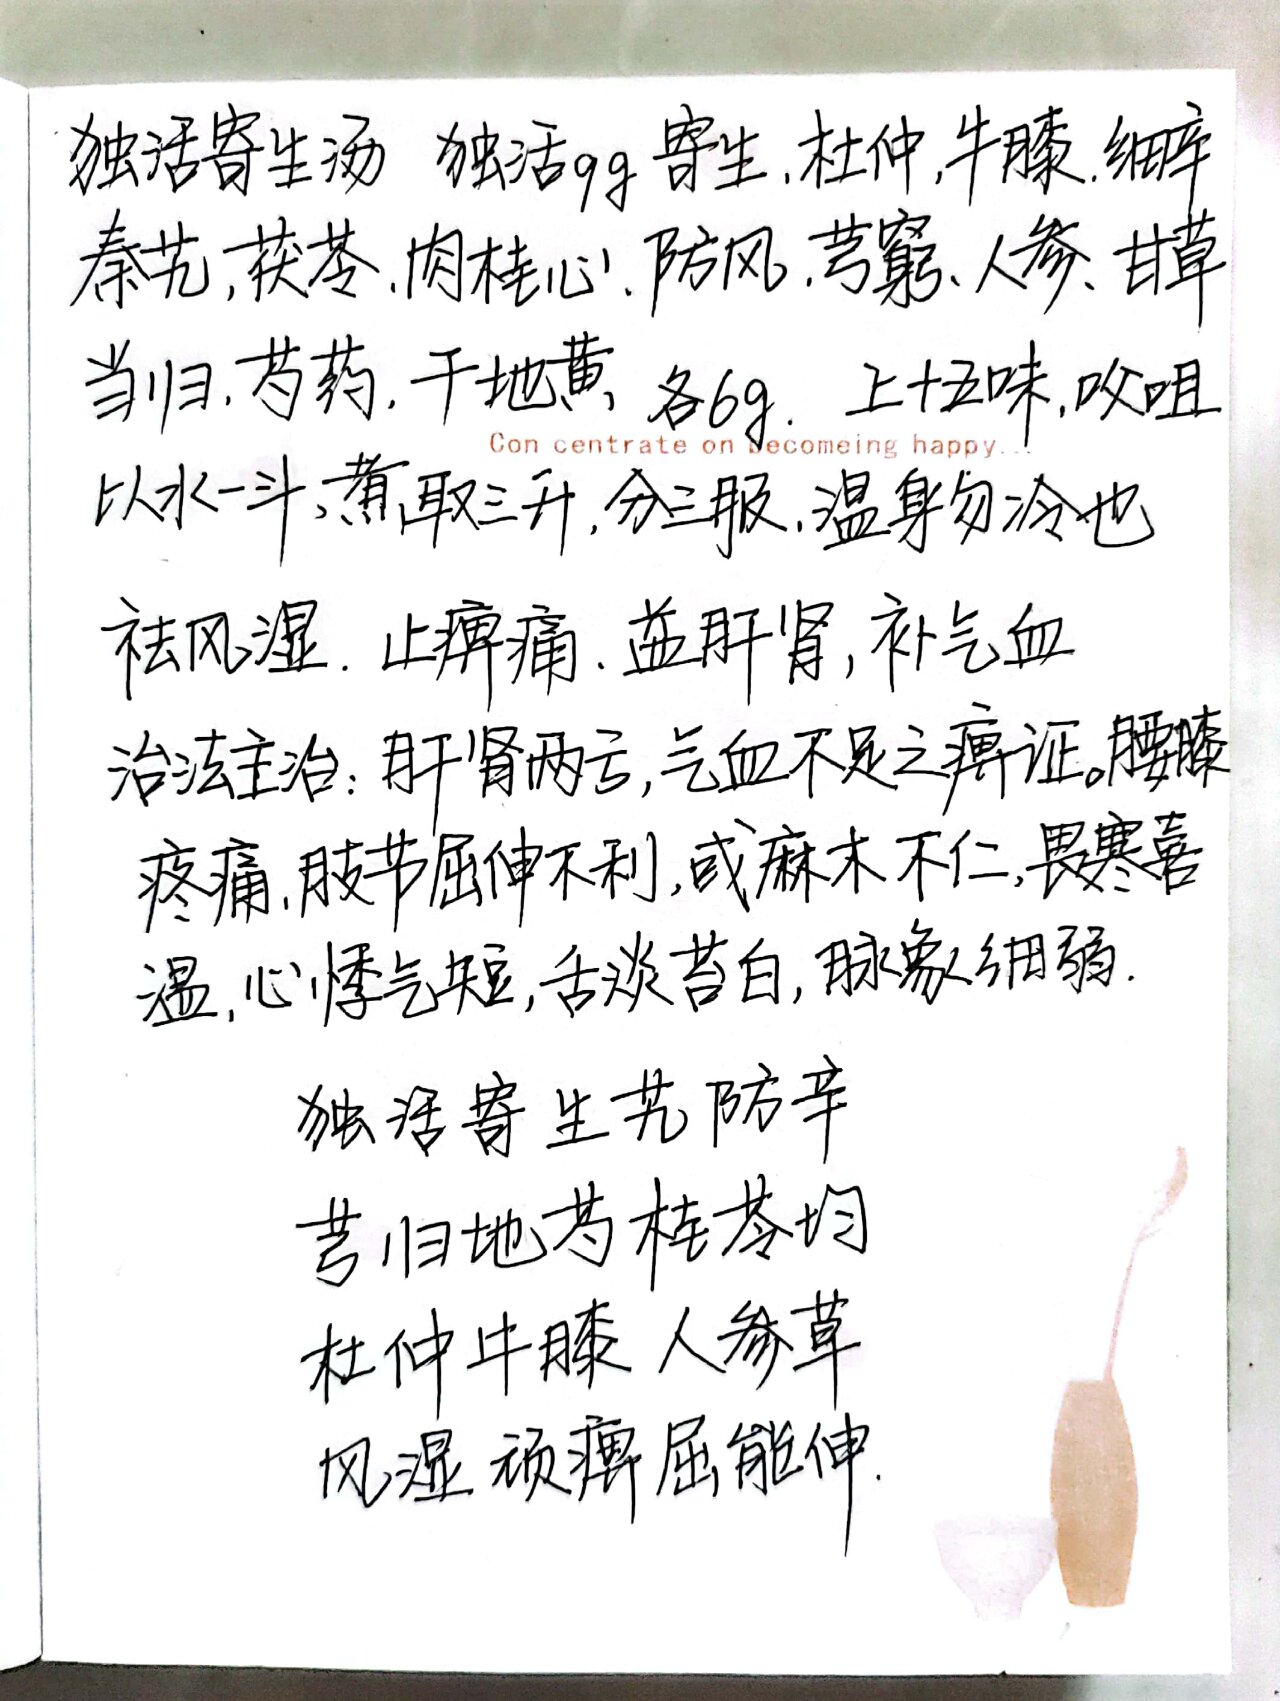 独活寄生汤 独活9g 寄生、杜仲、牛膝、细辛
秦艽、茯苓、肉桂心、防风、芎窮、人参、甘草
当归、芍药、干地黄、各6g. 上十五味,㕮咀
Con centrate on becomeing happy...
以水一斗,煮取三升,分三服,温身勿冷也
祛风湿.止痹痛.益肝肾,补气血
治法主治:肝肾两亏,气血不足之痹证。腰膝
疼痛,肢节屈伸不利,或麻木不仁,畏寒喜
温,心悸气短,舌淡苔白,脉象细弱.
独活寄生艽防辛
芎归地芍桂苓均
杜仲牛膝人参草
风湿顽痹屈能伸.